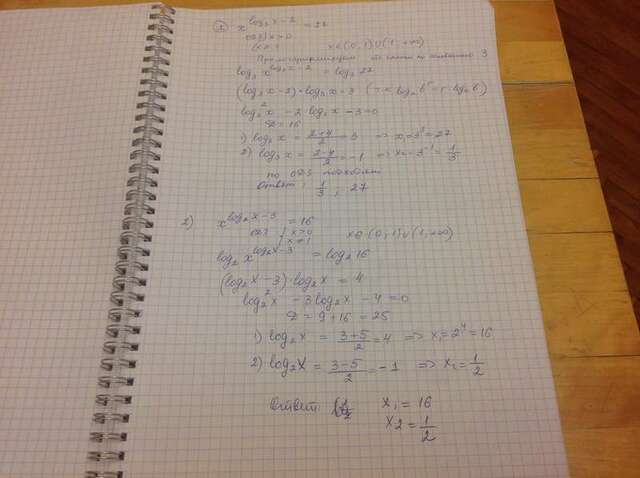 1) x^(log₃x-2) = 27
ОДЗ { x>0
x≠1 x∈(0,1)∪(1,+∞)
Прологарифмируем по основанию 3
log₃ x^(log₃x-2) = log₃ 27
(log₃x-2)·log₃x=3 (т.к log_a b^r = r·log_a b)
log₃²x - 2·log₃x - 3=0
D=16
1) log₃x = (2+4)/2 = 3 => x₁=3³=27
2) log₃x = (2-4)/2 = -1 => x₂=3^(-1)=1/3
по ОДЗ подходят
Ответ: 1/3 ; 27
2) x^(log₂x-3) = 16
ОДЗ { x>0
x≠1 x∈(0,1)∪(1,+∞)
log₂ x^(log₂x-3) = log₂ 16
(log₂x-3)·log₂x = 4
log₂²x - 3log₂x - 4 = 0
D = 9+16 = 25
1) log₂x = (3+5)/2 = 4 => x₁=2⁴=16
2) log₂x = (3-5)/2 = -1 => x₂=1/2
Ответ: x₁ = 16
x₂ = 1/2